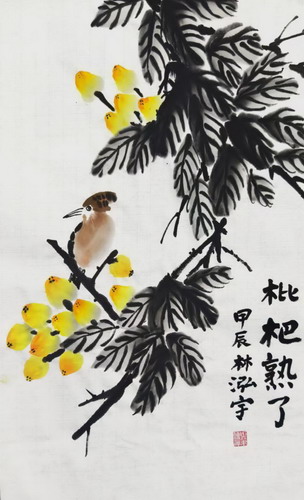 枇杷熟了
甲辰林泓宇